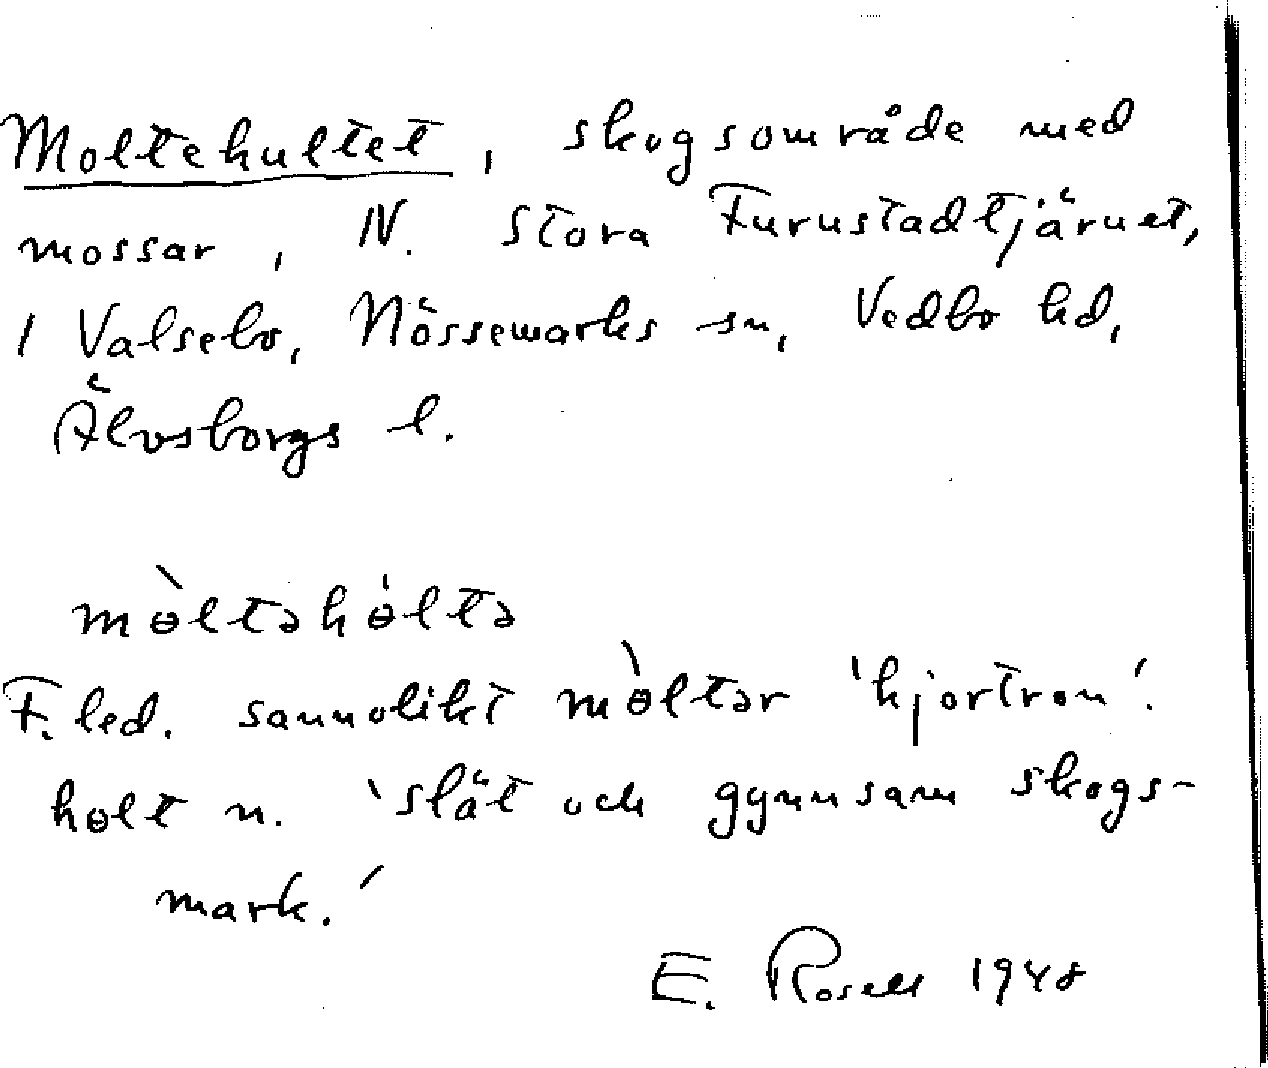 Moltehultet, skogsområde med
mossar, N. Stora Furustadtjärnet,
i Valsebo, Nössemarks sn, Vedbo hd,
Älvsborgs l.
mɵ̀ltəhɵ́ltə
F. led. sannolikt mɵ̀ltər 'hjortron'.
hɵlt n. 'slät och gynnsam skogs-
mark.'
E. Rosell 1948